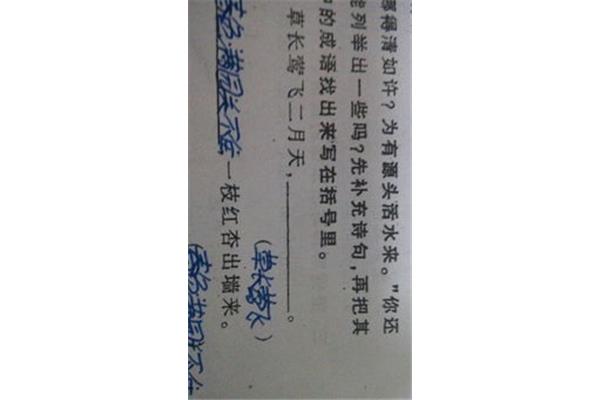 哪得清如许？为有源头活水来。"你还
能列举出一些吗？先补充诗句，再把其
中的成语找出来写在括号里。
草长莺飞二月天，________。
（草长莺飞）
春色满园关不住，一枝红杏出墙来。
春色满园关不住